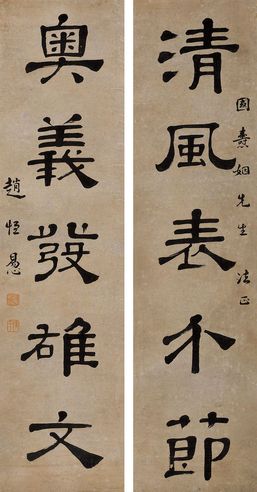 清風表介節
國燾姻先生法正
奧義發雄文
趙恒㥥